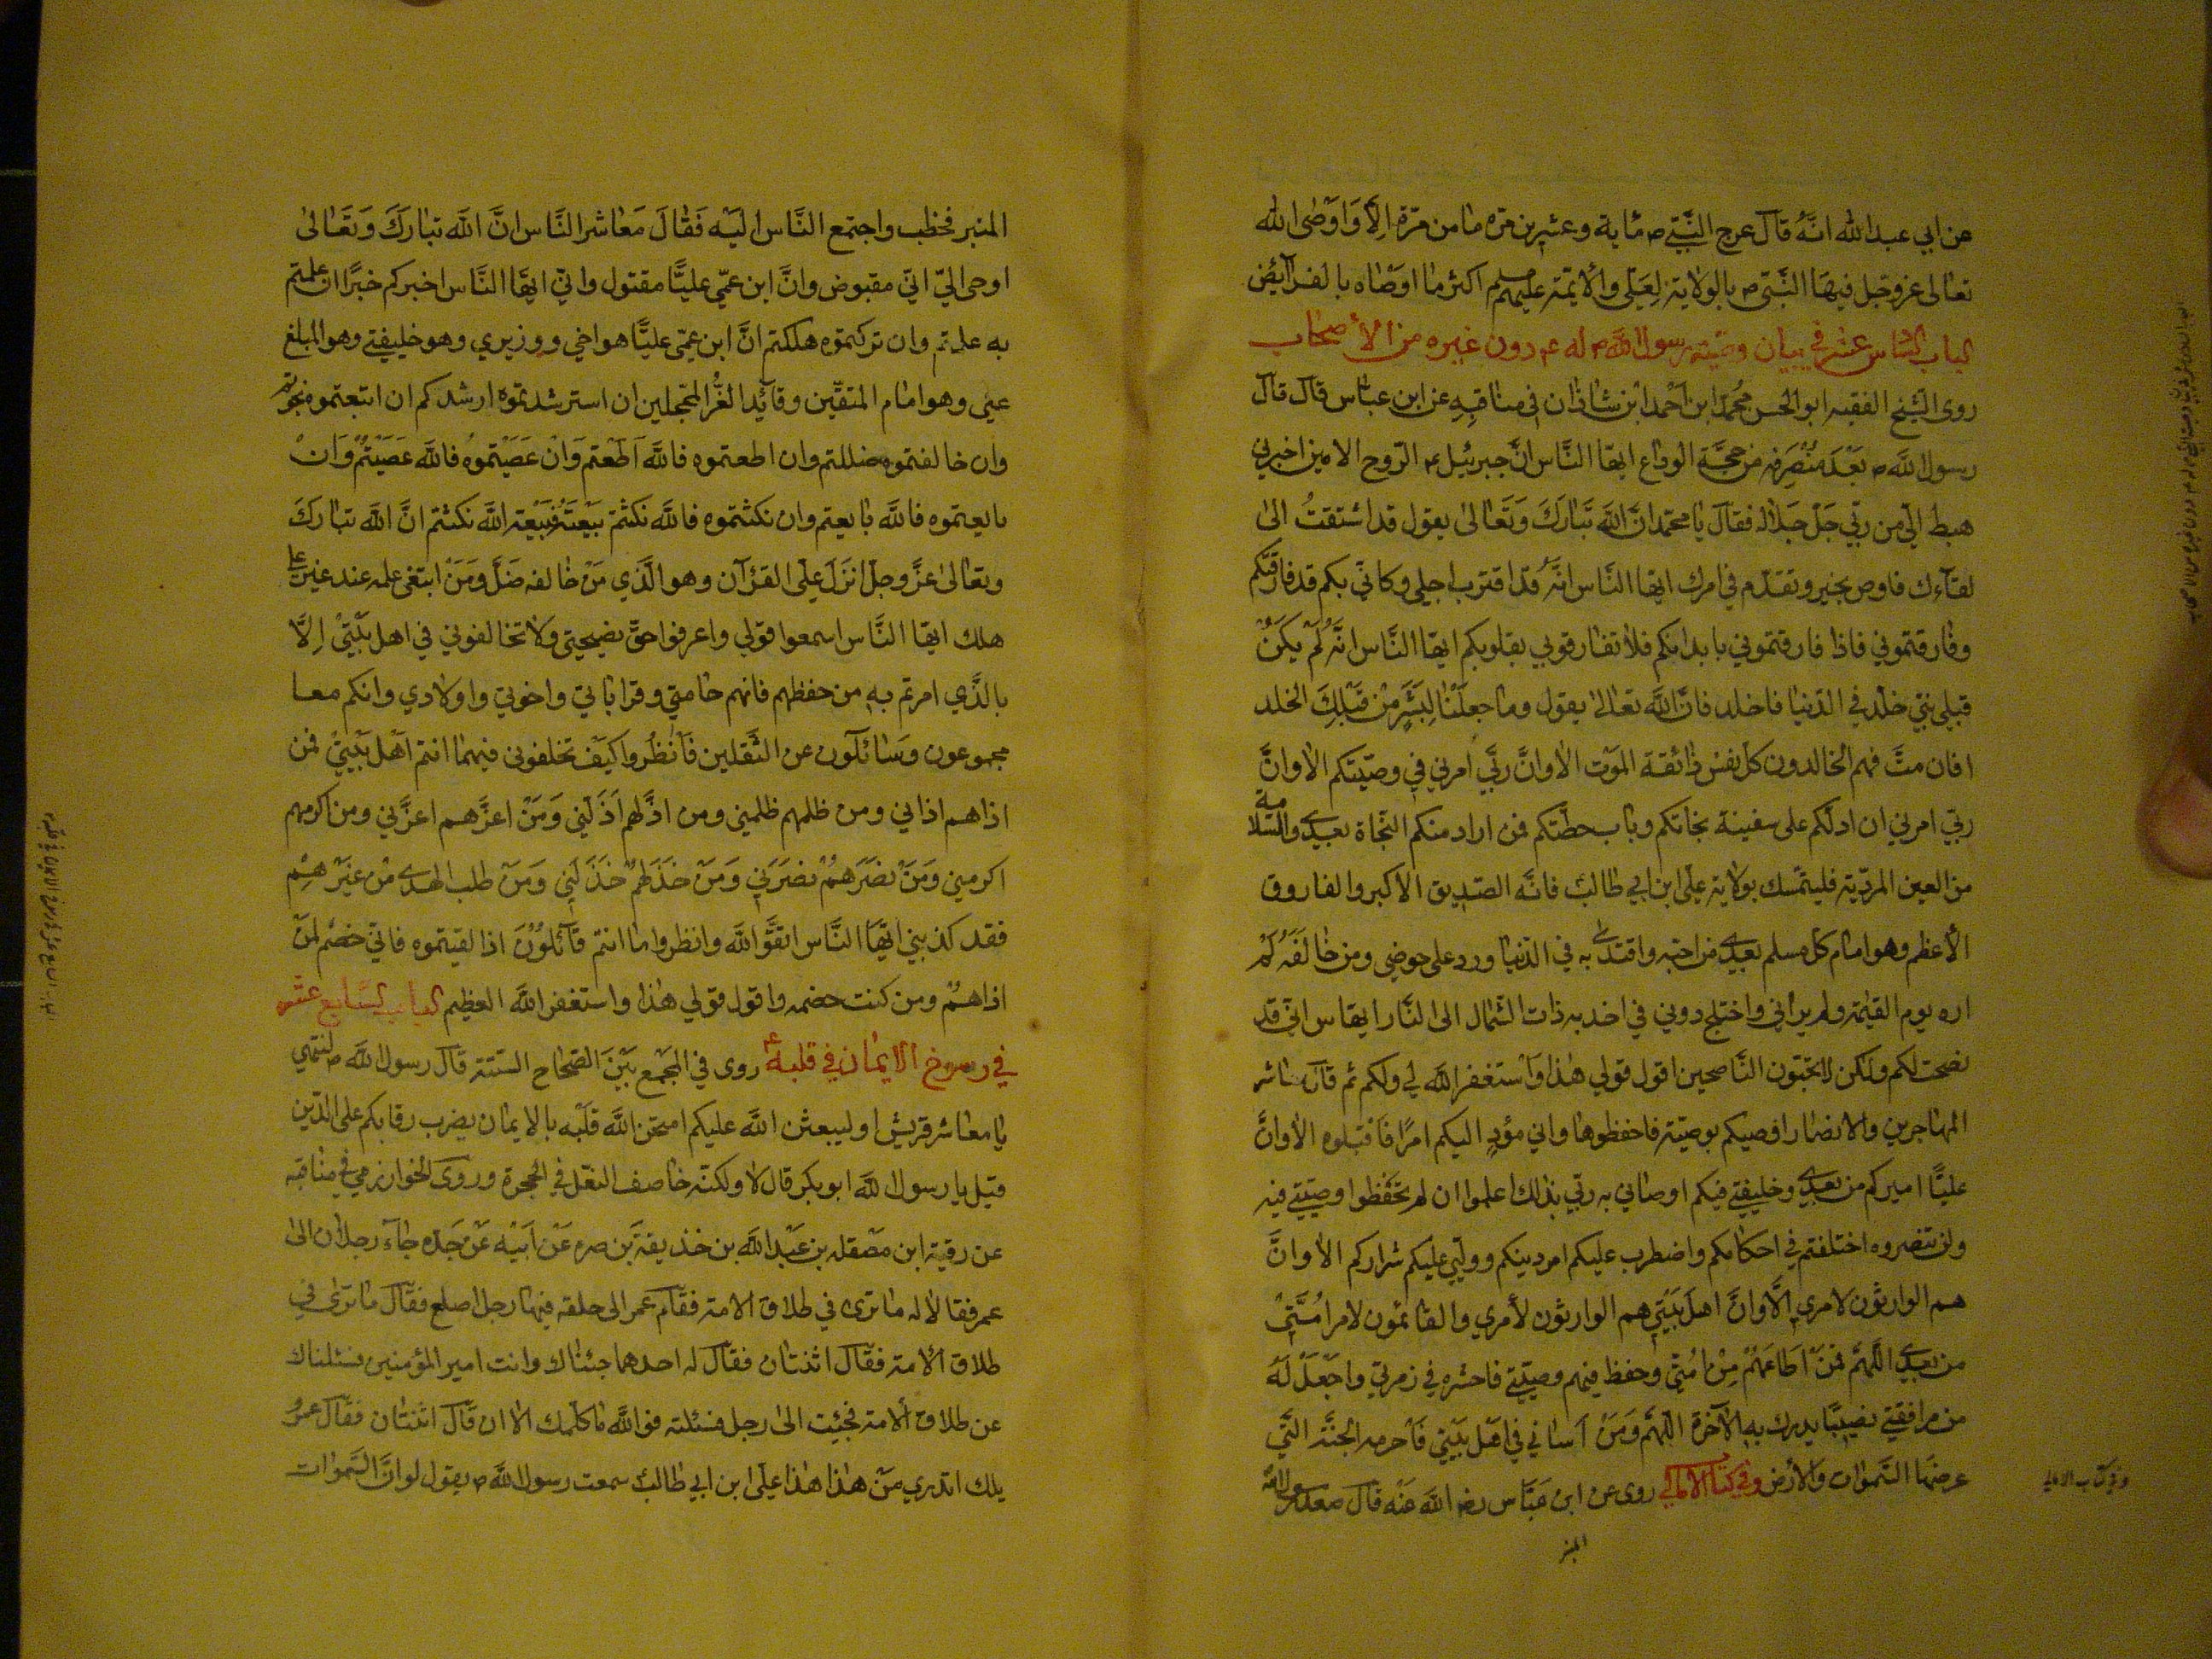 عن ابي عبد الله انّه قال عرج النّبيّ ص مأية وعشرين مرّة ما من مرّة الّا وَاوَصٰى الله
تعالى عزوجل فيها النّبي ص بالولاية لِعَلي والأئمّة عليهم اكثر ما اوصٰاه بالفرآيض
الباب السّاس عشر في بيان وصّية رسول اللّه ص له ع دون غيره من الأصحاب
روى الشّيخ الفقيه ابو الحسن محمّد ابن احْمد ابْن شاذان في مناقبه عن ابن عبّاس قال قال
رسول اللّه ص بَعْدَ مُنْصَرِفه من حجّة الوداع ايّها النّاس انّ جبرئيل ع الرّوح الامين اخبرني
هبط اليّ من ربّي جَلّ جَلاله فقال يا محمّد انّ اللّه تبٰارَكَ وَتَعٰالىٰ يقول قد اشتقتُ الىٰ
لقآءك فاوص بخير وتقدّم في امرك ايّها النّاس انّه قد اقترب اجلي وكانّي بكم قد فارقتكم
وفارقتموني فاذا فارقتموني بابدانكم فلا تفارقوني بقلوبكم ايّها النّاس انّه لَمْ يكنْ
قبلي نبيّ خلّد في الدّنيا فاخلد فانّ اللّه تعالىٰ يقول وما جعلْنٰا لِبَشَرٍ مِنْ قَبْلِكَ الخلد
افان متّ فهم الخالدون كل نفس ذائقة المَوْت الاٰ وانّ ربّي امرني في وصيّتكم الاٰ وانَّ
ربّي امرني ان ادلّكم على سفينة نجاتكم وباب حطّتكم فمن اراد منكم النّجاة بعدي والسّلامة
من العين المردّية فليتمّسك بولاية علي ابن ابي طالب فانّه الصّديق الأكبر والفاروق
الأعظم وهو امام كل مسلم بعدي من احبّه واقتدى به في الدّنيا ورد على حوضي ومن خالَفَهُ لَمْ
اره يوم القيٰمة ولم يراني واختلج دوني في اخذ به ذات الشّمال الى النّار ايهّاس انّي قد
نصحت لكم ولكن لا تحبّون النّاصحين اقول قولي هٰذا وَاَسْتغفر اللّه لي ولكم ثم قال معاشر
المهاجرين والانصٰار اوصيكم بوصيّة فاحفظوها واني مؤدٍ اليكم امرًا فَاقبَلوه الاٰ وانَّ
عليًّا اميركم من بعدي وخليفتي فيكم اوصاني به ربّي بذٰلك اعلموا ان لم تَحْفظوا وصيّتي فيه
ولم تنصروه اختلفتم في احكامكم واضطرب عليكم امر دينكم ووليّ عليكم شراركم الاٰ وانَّ
هم الوارثون لامري اَلَا وانَّ اهلَ بَيْتي هم الوارثون لأمري والقائمون لامر امُّتي
من بعدي اللّهمّ فمَنْ اَطٰاعَهُمْ مِنْ امُتّي وحفظ فيهم وصيّتي فاحشره في زمرتي واجْعَلْ لَهُ
من مرافقتي نصيبًا يدرك به الاٰخرة اللّهمّ وَمَنْ اَسٰائني في اهل بَيْتي فَاحْرمه الجنّة الّتي
عرضها السّموٰات والأرض وفي كتاب الامالي روى عن ابن عبّاس رضـ اللّه عنْه قال صعد رسول اللّه
المنبر
وفي كتاب الامالي
المنبر فخطب واجتمع النّاس اليَه فَقٰالَ مَعاشر النّاس انَّ اللّه تبارَكَ وَتَعٰالىٰ
اوحى اليّ انّي مقبوض وانَّ ابن عمّي عليًّا مقتول وانّي ايّها النّاس اخبركم خبرًا ان علمتم
به علمتم وان تركتموه هلكتم انَّ ابن عمّي عليًّا هو اخي ووزيري وهو خليفتي وهو المبلغ
عنّي وهو امام المتقّين وقآئد الغُرّ المحجّلين ان استرشدتموه ارشدكم ان اتبعتموه نجوتم
وان خالفتموه ضللتم وان اطعتموه فاللّه اَطَعْتم وَانْ عَصَيْتموُه فاللّه عَصَيْتمُ وَانْ
بايعتموه فاللّه بايعتم وان نكثتموه فاللّه نكثتم بيْعَتَهُ فَبَيْعَة اللّه نكثتم انَّ اللّه تبٰاركَ
وتعٰالىٰ عزَّ وجلّ انزَلَ عليّ القرْآن وهو الّذَي مَنْ خٰالفه ضَلَّ وَمَنْ ابتغى علمه عند غير علي
هلك ايّها النَّاس اسمعوا قولي واعرفوا حقّ نصيحتي ولا تخالفوني في اهل بَيْتيْ اِلَّا
بالّذَي امرتم به من حفظهم فانهم حامتي وقراباتي واخوتي واولادي وانكم معا
مجموعون وَسٰائلون عن الثَّقلين فَاَنظُروا كيْف تخلفوني فيهما انتم اَهل بَيْتيْ فمن
اذاهم اذاني ومن ظلمهم ظلمني ومن اذّلهم اَذَلّني وَمَنْ اعزّهم اعزَّني ومن اكرمهم
اكرمني وَمَنْ نصَرَهُمْ نصَرَني وَمَنْ خذَلهمْ خَذَلَني وَمَنْ طلب الهدى مْن غَيْرهِمْ
فقد كذبني ايّهّا النَّاس اتقَّوا اللّه وانظروا ما انتم قآئلوُنَ اذا لقيتموه فانّي خصْم لمَنْ
اذاهمْ ومن كنت خصمه واقول قولي هٰذا واستغفر اللّه العظيم الباب السّابع عشر
في رسوخ الايمان في قلبه ع روى في الجَمْع بَيْنَ الصّحاح السّتة قال رسول اللّه ص لتنتهي
يا معاشر قريش او ليبعثن اللّه عليكم امتحن اللّه قلْبه بالايمان يضرب رقابكم على الدّين
قيل يا رسول اللّه ابو بكر قال لا ولكنّه خاصف النعْل في الحجرة وروى الخوارزمي في مناقبه
عن رقية ابن مصْقلة بن عَبْد اللّه بن خذيفة بن صره عَنْ اَبيْه عَنْ جَدّه جٰآء رجلان الىٰ
عمر فقالا له ما ترى في طلاق الامة فقام عمر الى حلقة فيها رجل اصلع فقال ما ترىٰ في
طلاق الأمة فقال اثنتٰان فقٰال له احدهما جئناك وانت امير المؤمنين فسئلناك
عن طلاق الأمة فجئت الىٰ رجل فسئلته فو اللّه ما كلّمك الا ان قال اثنتٰان فقٰال عمرُ
يلك اتدري مَنْ هٰذا هٰذا علي ابن ابي طالب سمعت رسول اللّه ص يقول لو انَّ السّموٰات